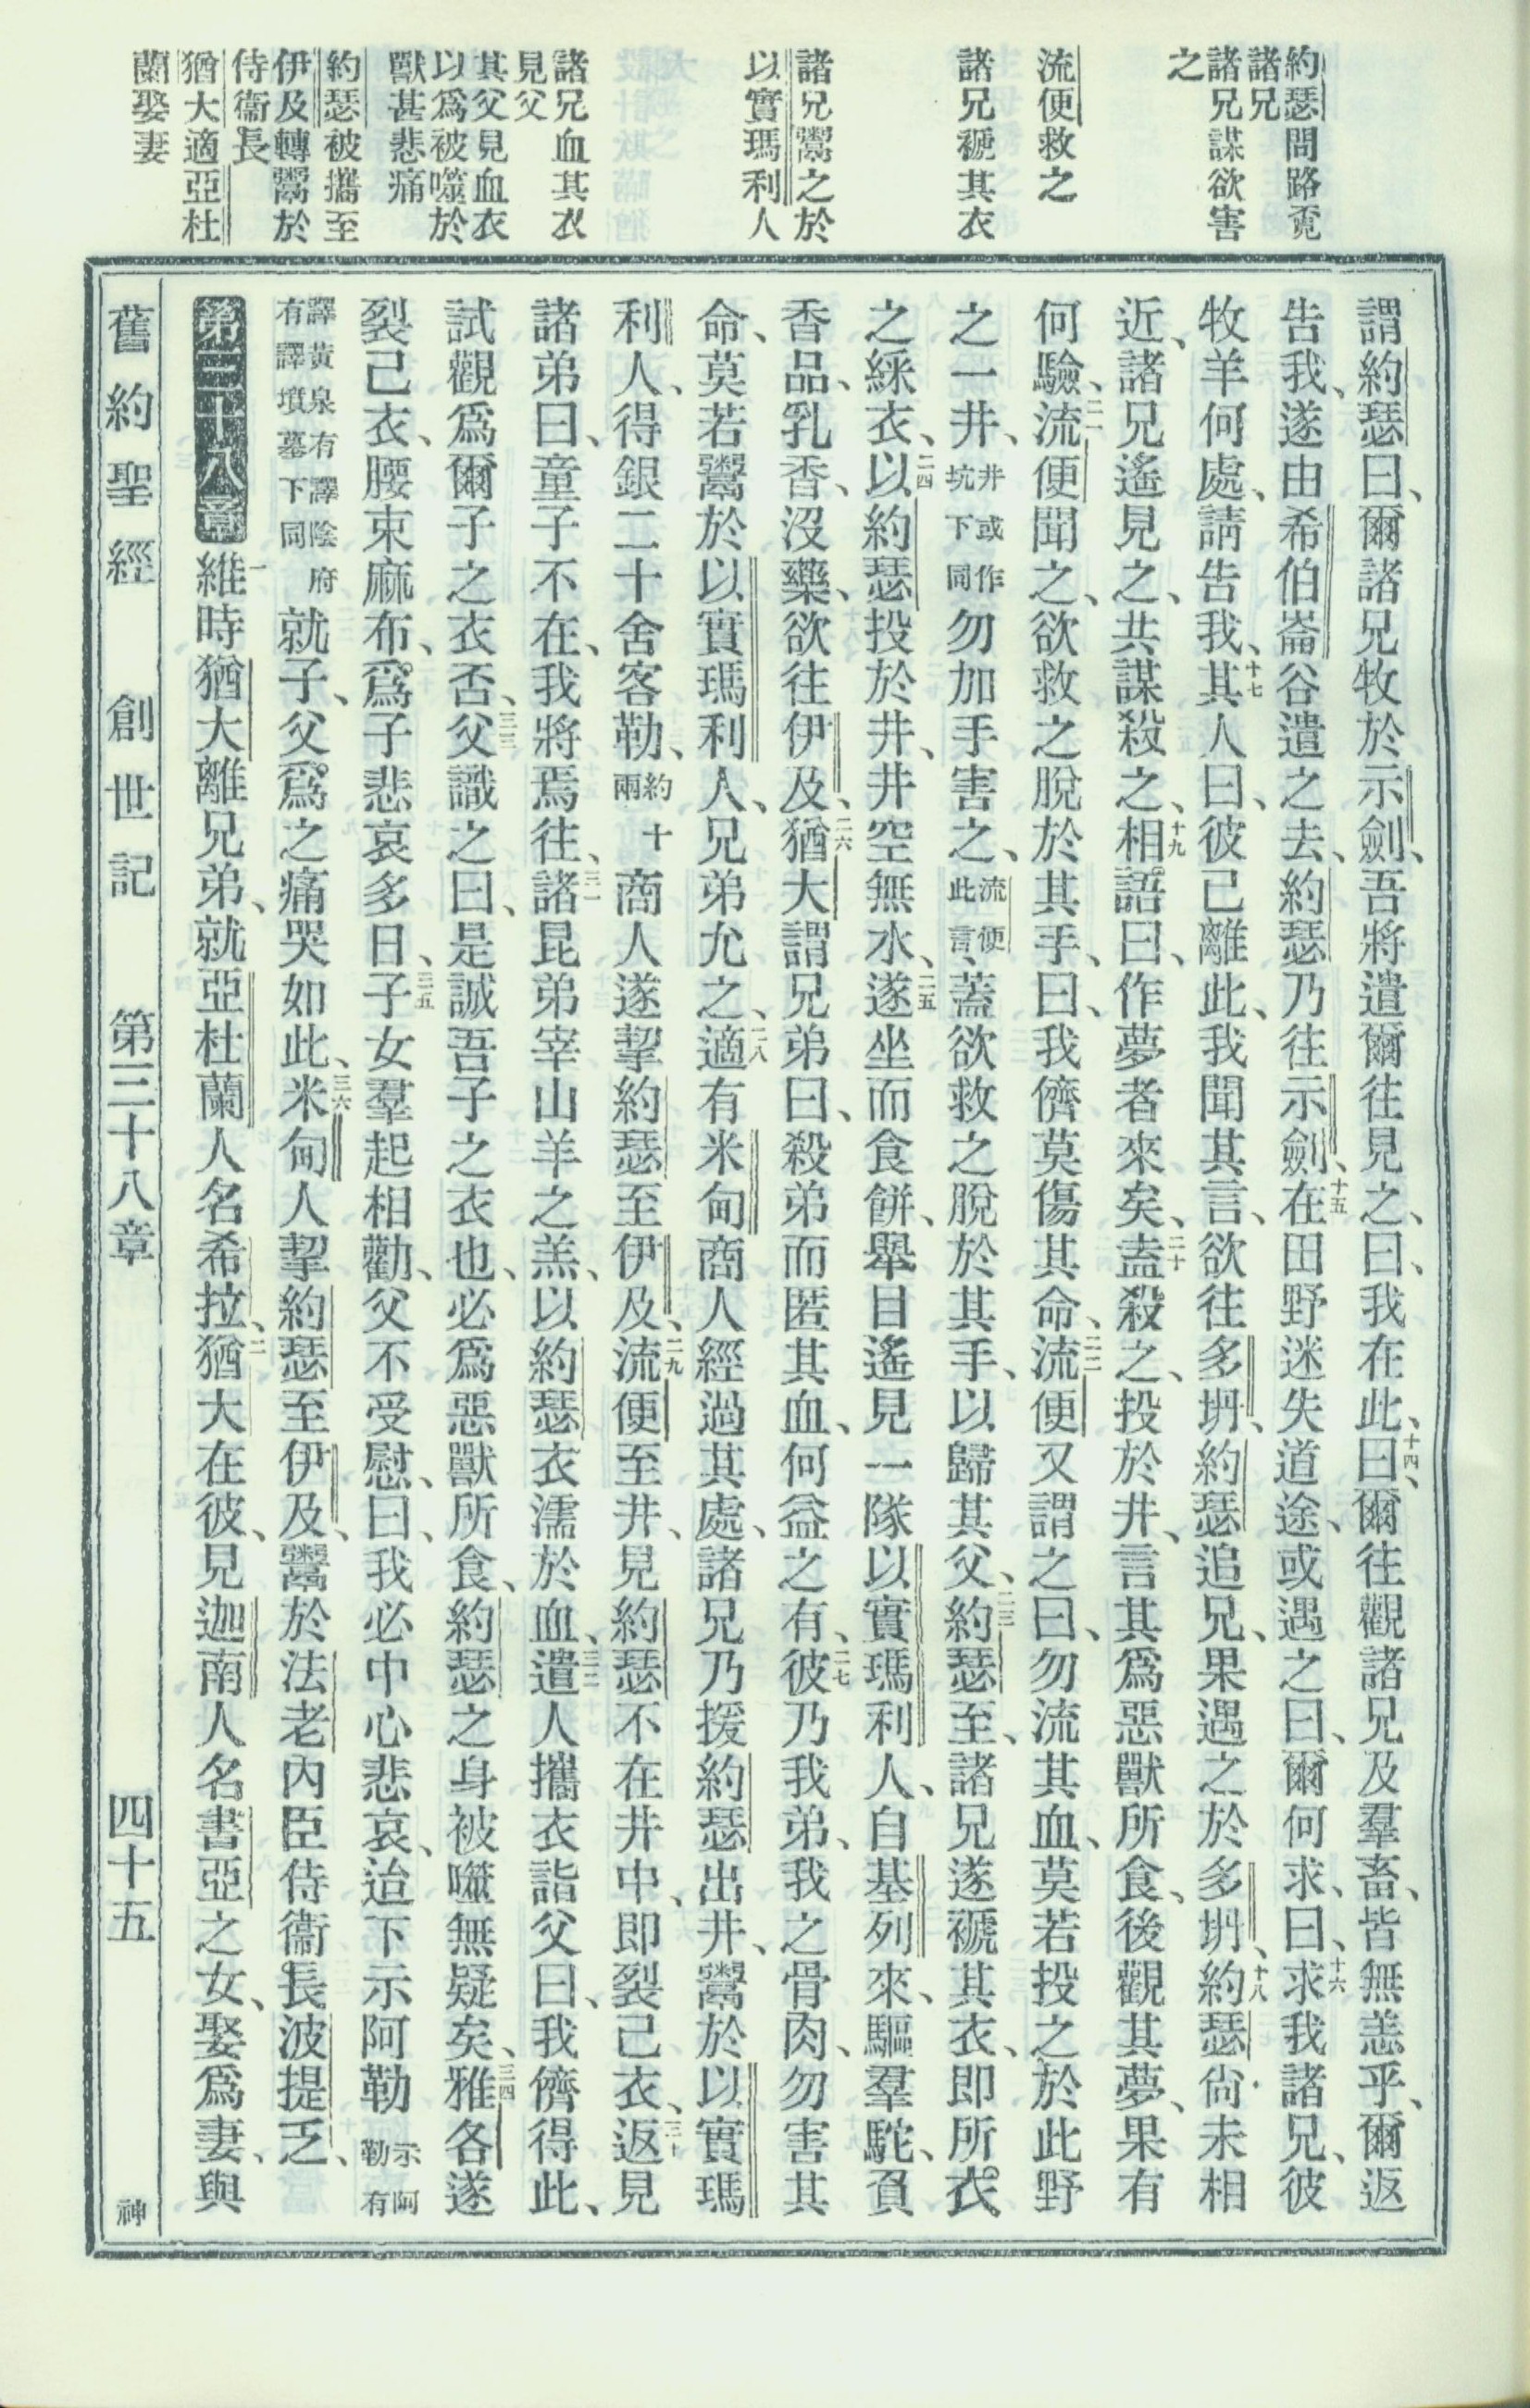 約瑟問路覓
諸兄
諸兄謀欲害
之
流便救之
諸兄褫其衣
諸兄鬻之於
以實瑪利人
諸兄血其衣
見父
其父見血衣
以爲被噬於
獸甚悲痛
約瑟被攜至
伊及轉鬻於
侍衞長
猶大適亞杜
蘭娶妻
謂約瑟曰、爾諸兄牧於示劍、吾將遣爾往見之、曰、我在此、十四曰、爾往觀諸兄及羣畜、皆無恙乎、爾返
告我、遂由希伯崙谷遣之去、約瑟乃往示劍、十五在田野迷失道途、或遇之曰、爾何求、曰、十六求我諸兄、彼
牧羊何處、請告我、十七其人曰、彼已離此、我聞其言、欲往多坍、約瑟追兄、果遇之於多坍、十八約瑟尙未相
近、諸兄遙見之、共謀殺之、十九相語曰、作夢者來矣、二十盍殺之、投於井、言其爲惡獸所食、後觀其夢、果有
何驗、二一流便聞之、欲救之脫於其手、曰、我儕莫傷其命、二二流便又謂之曰、勿流其血、莫若投之於此野
之一井、井或作坑下同勿加手害之、流便此言、蓋欲救之脫於其手、以歸其父、二三約瑟至、諸兄遂褫其衣、即所衣
之綵衣、二四以約瑟投於井、井空無水、二五遂坐而食餅、舉目遙見一隊以實瑪利人、自基列來、驅羣駝、負
香品、乳香、沒藥、欲往伊及、二六猶大謂兄弟曰、殺弟而匿其血、何益之有、二七彼乃我弟、我之骨肉、勿害其
命、莫若鬻於以實瑪利人、兄弟允之、二八適有米甸商人經過其處、諸兄乃援約瑟出井、鬻於以實瑪
利人、得銀二十舍客勒、約十兩商人遂挈約瑟至伊及、二九流便至井、見約瑟不在井中、即裂己衣、三十返見
諸弟曰、童子不在、我將焉往、三一諸昆弟宰山羊之羔、以約瑟衣濡於血、三二遣人攜衣詣父曰、我儕得此、
試觀爲爾子之衣否、三三父識之曰、是誠吾子之衣也、必爲惡獸所食、約瑟之身被噬無疑矣、三四雅各遂
裂己衣、腰束麻布、爲子悲哀多日、三五子女羣起相勸、父不受慰、曰、我必中心悲哀、迨下示阿勒示阿勒有
譯黃泉有譯陰府有譯墳墓下同就子、父爲之痛哭如此、三六米甸人挈約瑟至伊及、鬻於法老內臣侍衞長波提乏、
第三十八章一維時猶大離兄弟、就亞杜蘭人名希拉、二猶大在彼、見迦南人名書亞之女、娶爲妻、與
舊約聖經　創世記　第三十八章　四十五　神